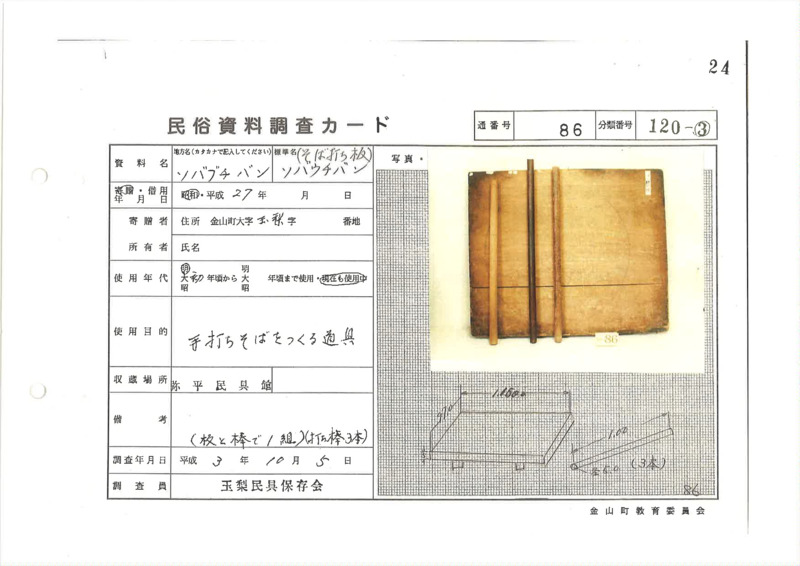 24
民俗資料調査カード
通番号 86 分類番号 120-③
資料名
地方名(カタカナで記入してください) ソバブチバン
標準名 (そば打ち板) ソバウチバン
写真・
寄贈・借用年月日 昭和・平成 27年 月 日
寄贈者 住所 金山町大字 玉梨 字 番地
所有者 氏名
使用年代 明大昭 初 年頃から 明大昭 年頃まで使用・現在も使用中
使用目的 手打ちそばをつくる道具
収蔵場所 弥平民具館
備考 (板と棒で1組)(打伝棒3本)
調査年月日 平成 3年 10月 5日
調査員 玉梨民具保存会
86
1.150
970
1.00
(3本)
86
金山町教育委員会